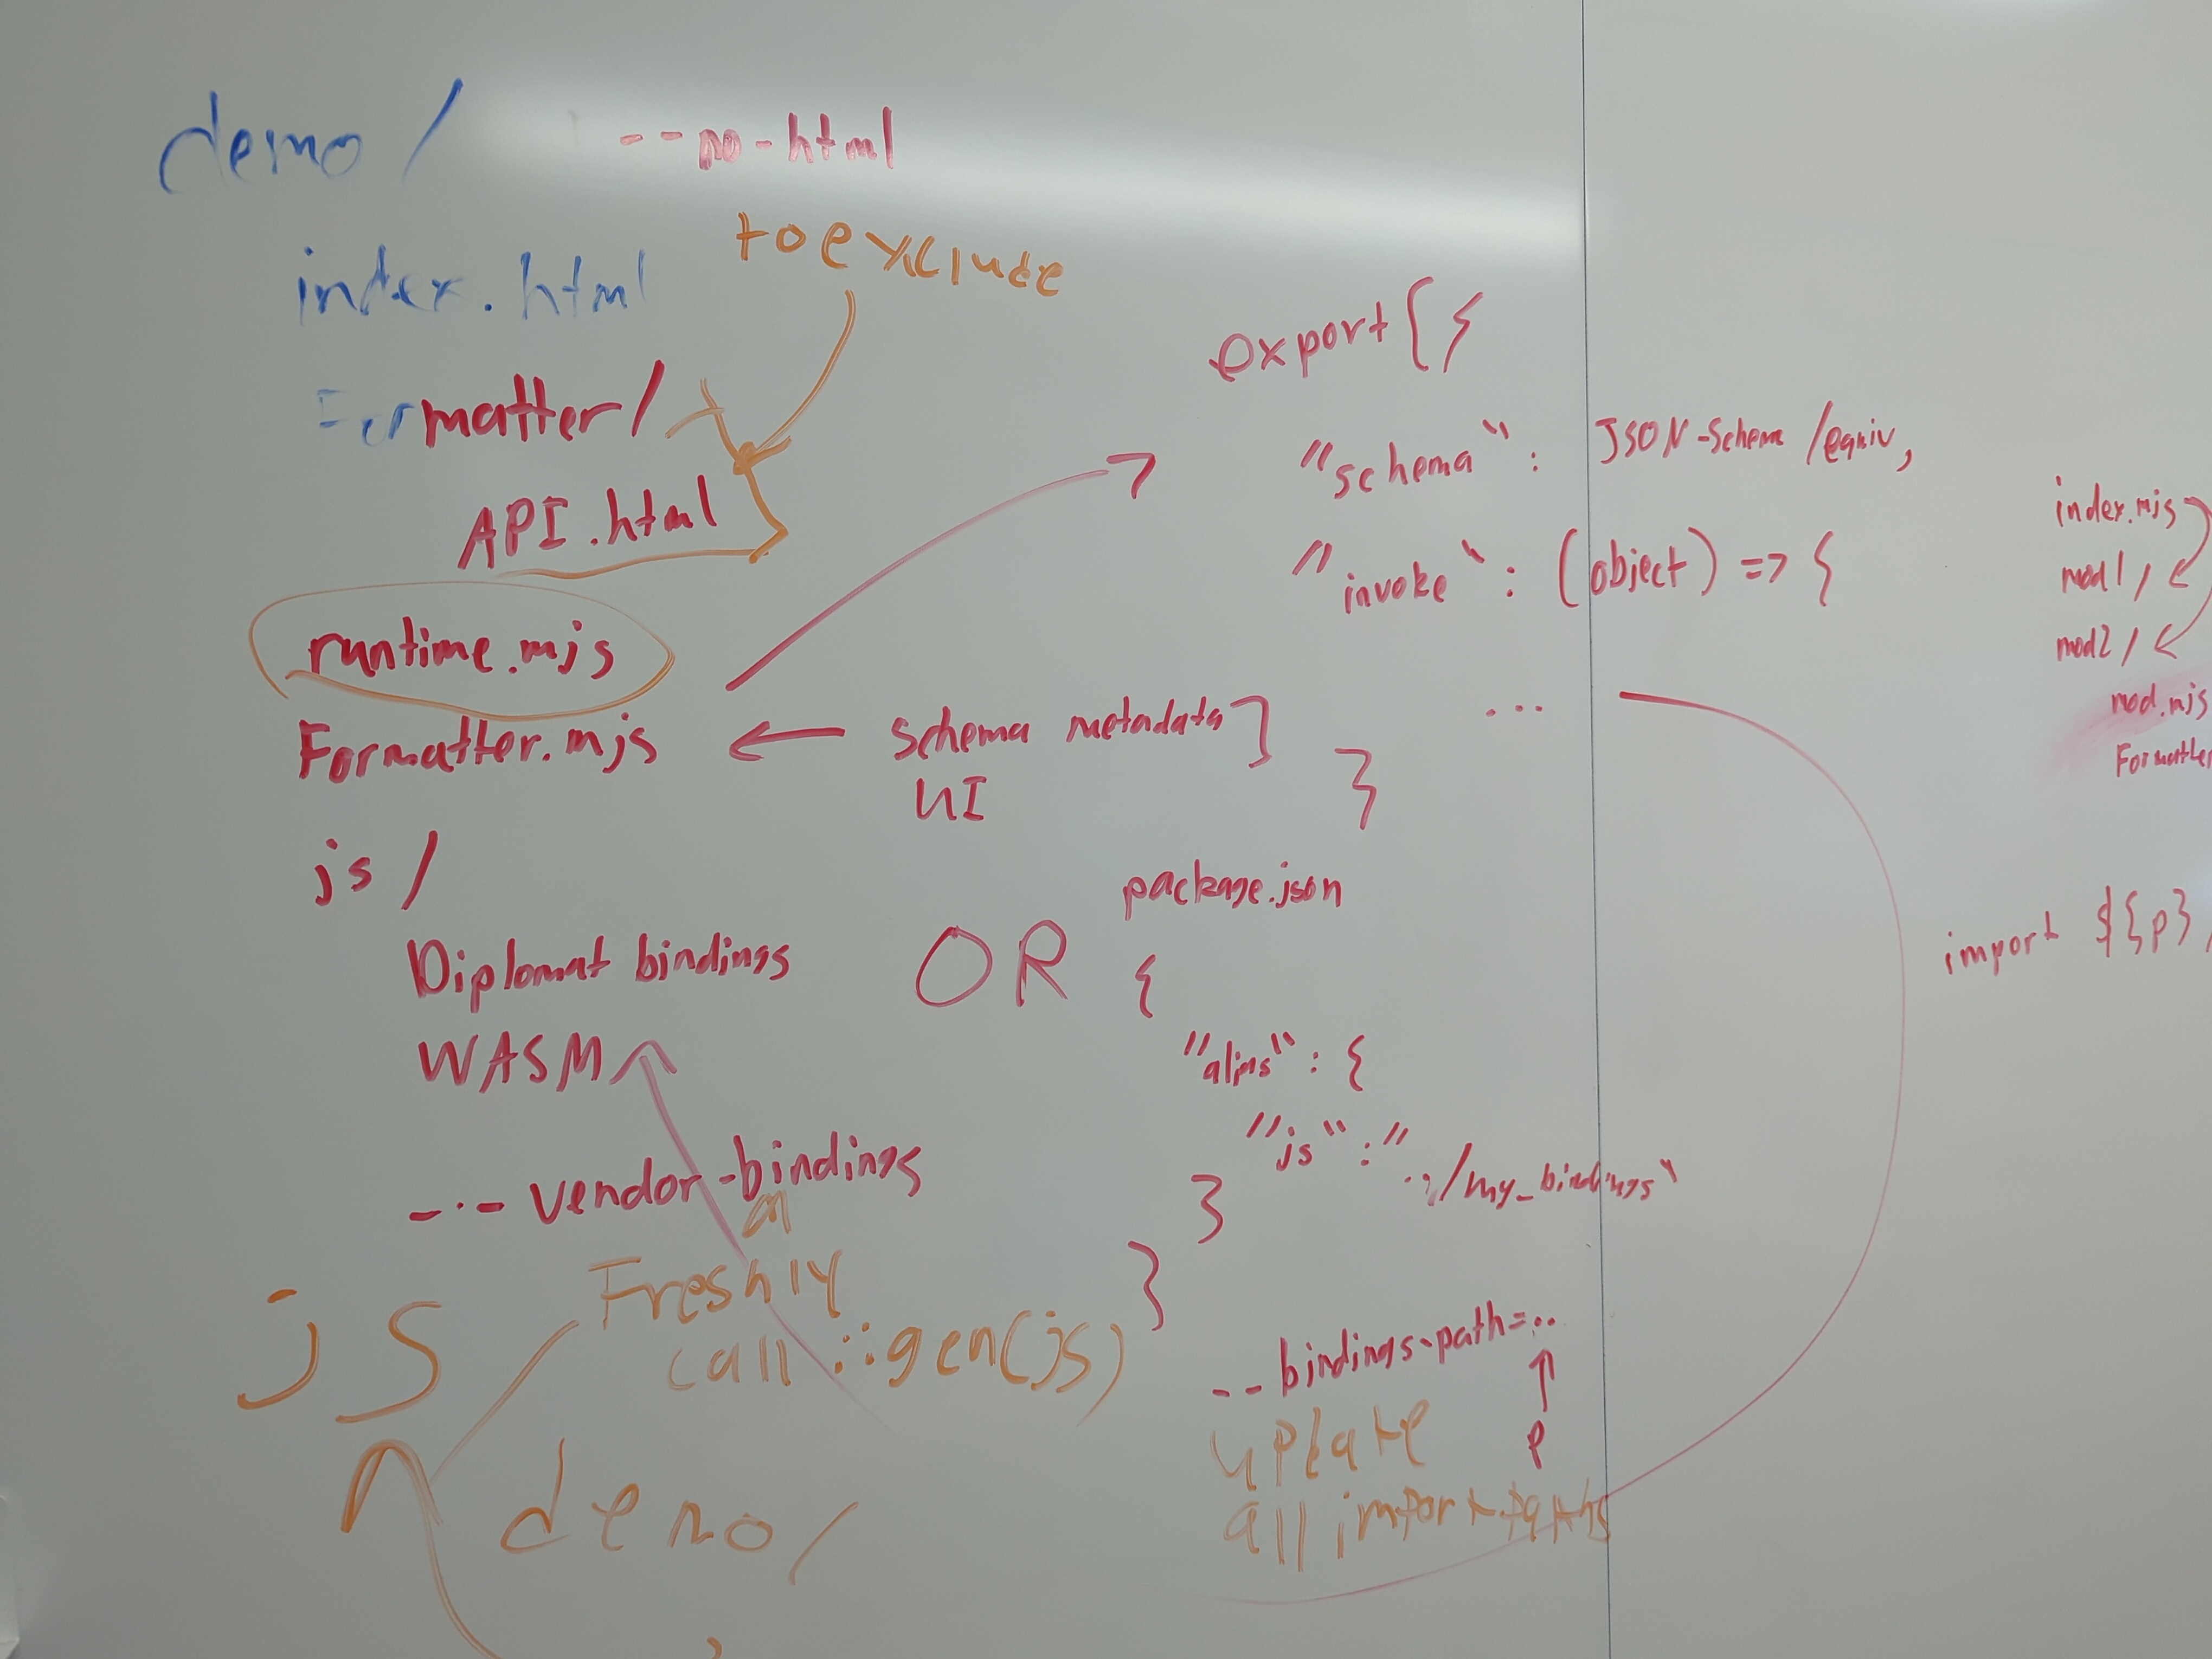 demo/
--no-html
to exclude
index.html
Formatter/
API.html
runtime.mjs
Formatter.mjs
← schema metadata]
UI
js/
Diplomat bindings
WASM
--- vendor-bindings
Freshly
call ::gen(js)
js
demo/
export [{
"schema": JSON-Schema/equiv,
"invoke": (object) => {
...
}
OR
package.json
{
"alias": {
"js": "../my_bindings"
}
}
--bindings-path=..
↑
p
update
all import paths
index.mjs
mod1/
mod2/
mod.mjs
Formatter
import ${p}/